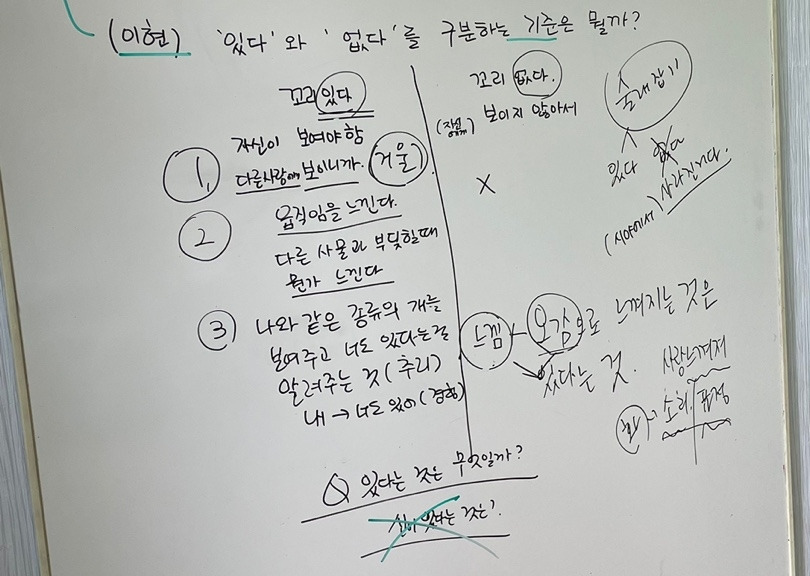 (이현) '있다'와 '없다'를 구분하는 기준은 뭘까?
꼬리 있다
자신이 보여야 함
1, 다른사람에 보이니까. 거울
2 움직임을 느낀다.
다른 사물과 부딪힐때
뭔가 느낀다
3 나와 같은 종류의 개를
보여주고 너도 있다는걸
알려주는 것 (추리)
내 → 너도 있어 (경험)
꼬리 없다.
보이지 않아서
X
술래잡기
있다 없다
(시야에서) 사라진거다.
느낌 오감으로 느껴지는 것은
있다는 것.
사랑느껴져
표정
Q 있다는 것은 무엇일까?
신이 있다는 것은?